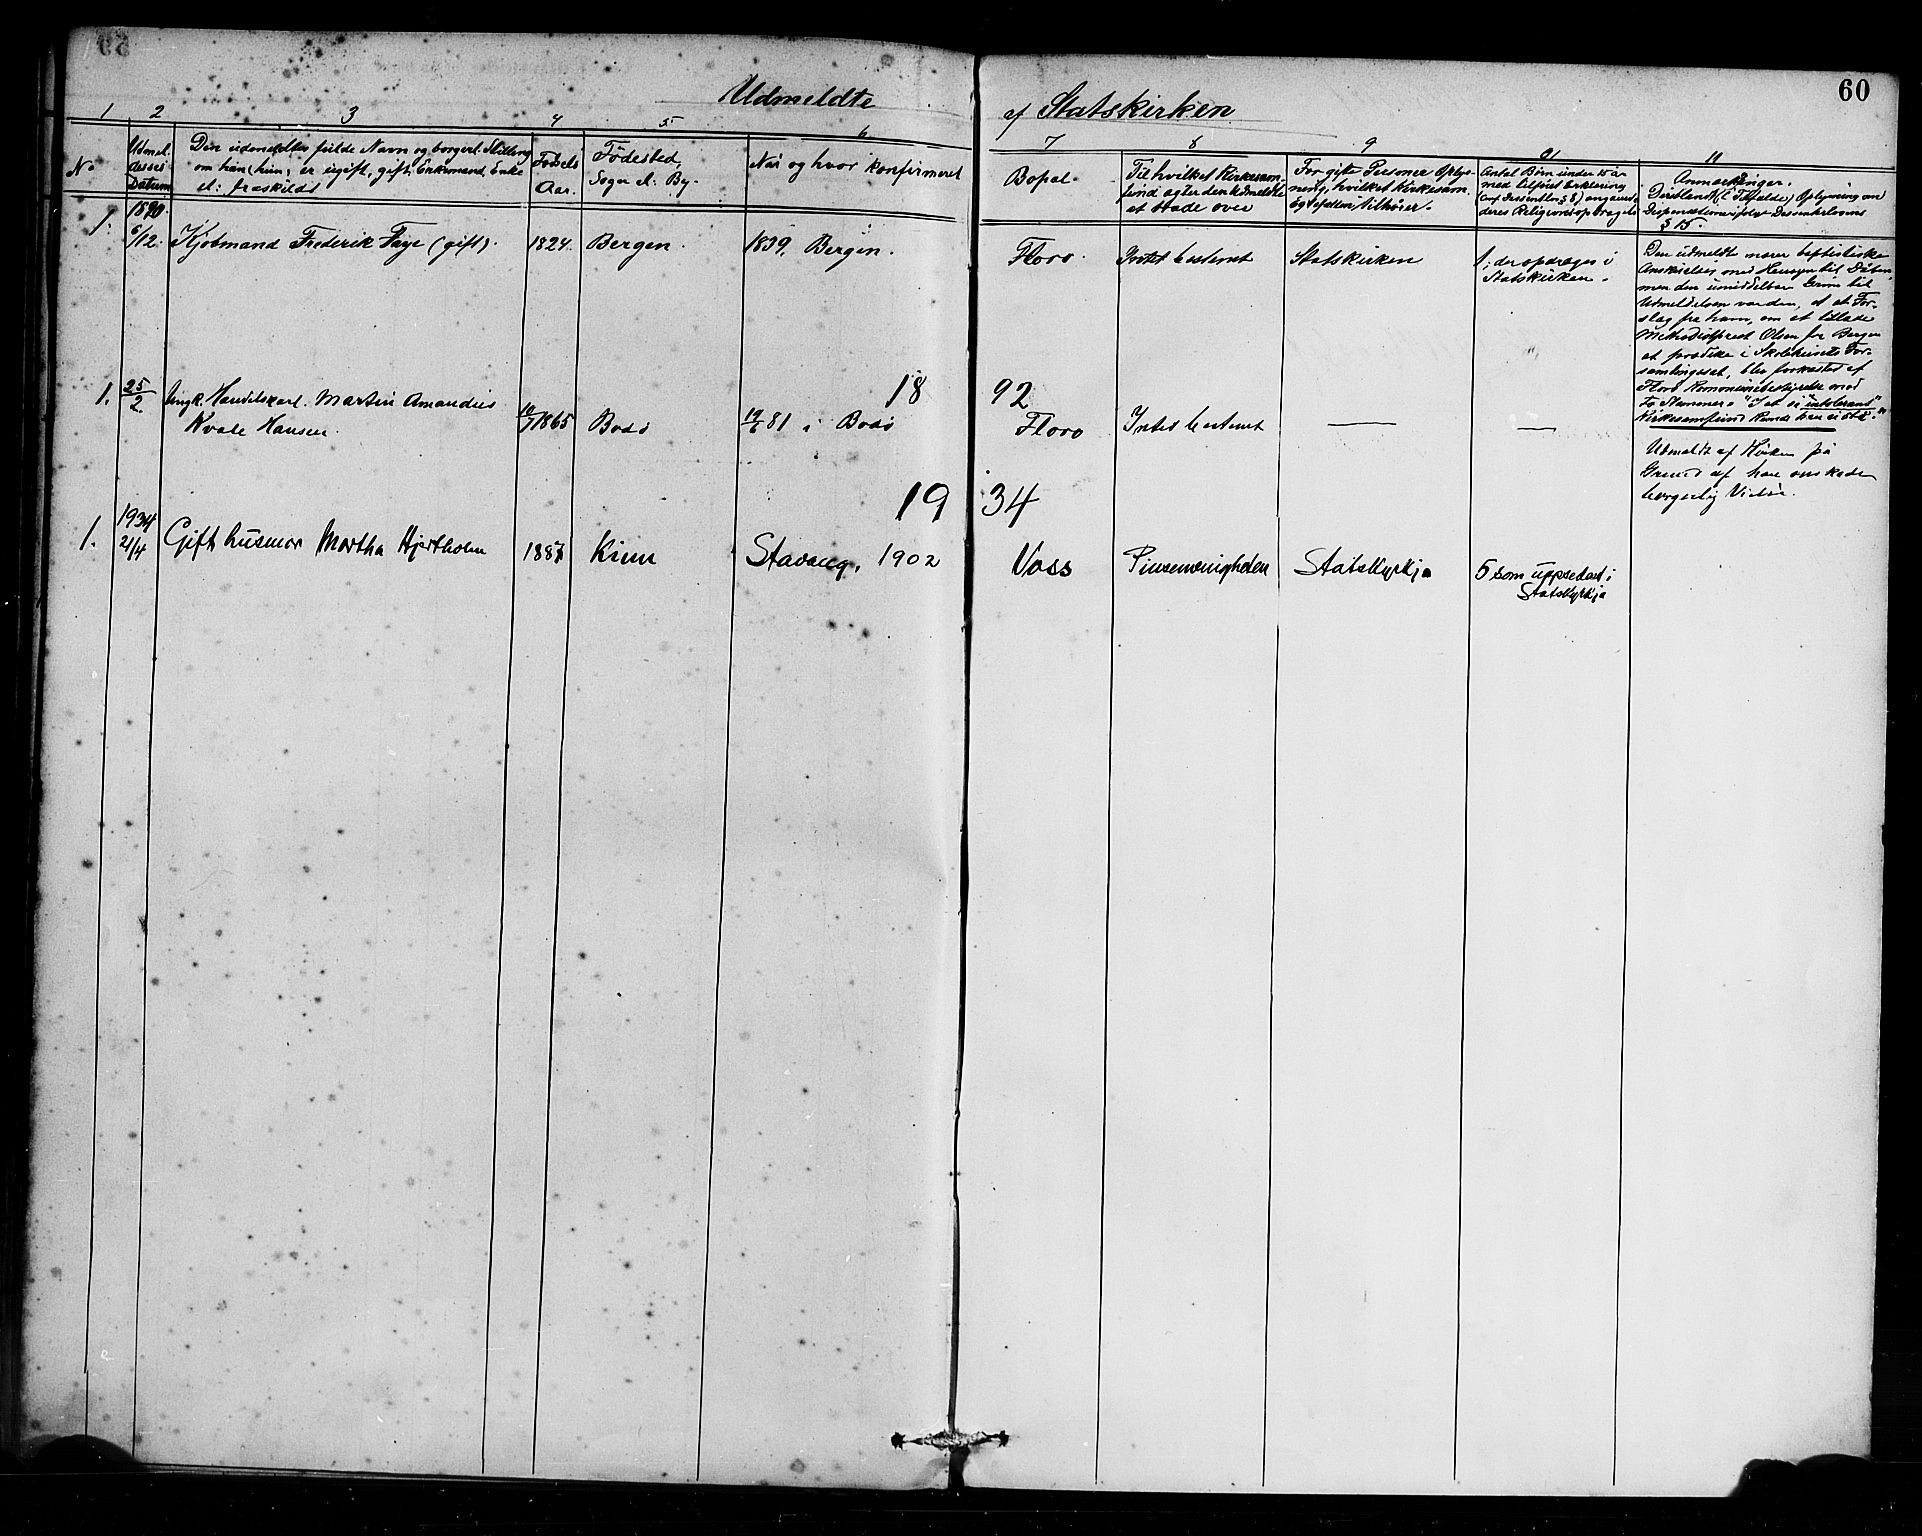 60
Udmeldte af Statskirken
1 2 3 4 5 6 7 8 9 10 11
No
Udmel-
delses-
Datum
Den udmeldtes fulde Navn og borgerl. Stilling
om han (hun) er ugift, gift, Enkemand, Enke
el: fraskildt
Fødsels
Aar.
Fødested,
Sogn el: By.
Når og hvor konfirmeret
Bopæl.
Til hvilket Kirkesam-
fund agter den Udmeldte
at træde over
For gifte Personer Oplys-
ning, hvilket Kirkesam.
Ægtefællen tilhører.
Antal Børn under 15 år
med tilføiet Erklæring
(cnf Dissenterl. § 8) angaaende
deres Religionsopdragelse
Anmærkninger.
(i Tilfælde) Oplysning om
Dispensation ifølge Dissenterlovens
§ 15.
1.
1890.
6/12.
Kjøbmand Frederik Faye (gift).
1824.
Bergen.
1839, Bergen.
Florø.
Intet bestemt
Statskirken
1, der opdrages i
Statskirken.
Den udmeldt nærer baptistiske
Anskuelser med Hensyn til Dåben
men den umiddelbare Grund til
Udmeldelsen var den, at et For-
slag fra ham, om at tillade
Methodistprest Olsen fra Bergen
at prædike i Skolehusets For-
samlingssal, blev forkastet af
Florø Kommunebestyrelse mod
to Stemmer. "I et så "intolerant"
Kirkesamfund kunde han ei stå."
18 92
1.
25/2.
Ungk. Handelskarl. Martin Amandus
Kvale Hansen.
10/7 1865
Bodø
19/6 81 i Bodø
Florø
Intet bestemt
—
—
Udmeldt af Kirken på
Grund af han ønskede
borgerlig Vielse.
19 34
1.
1934
21/4
Gift husmor Martha Hjertholm
1887
Kinn
Stavang, 1902
Voss
Pinsemenigheten
Statskyrkja
5 som uppsedast i
Statskyrkja